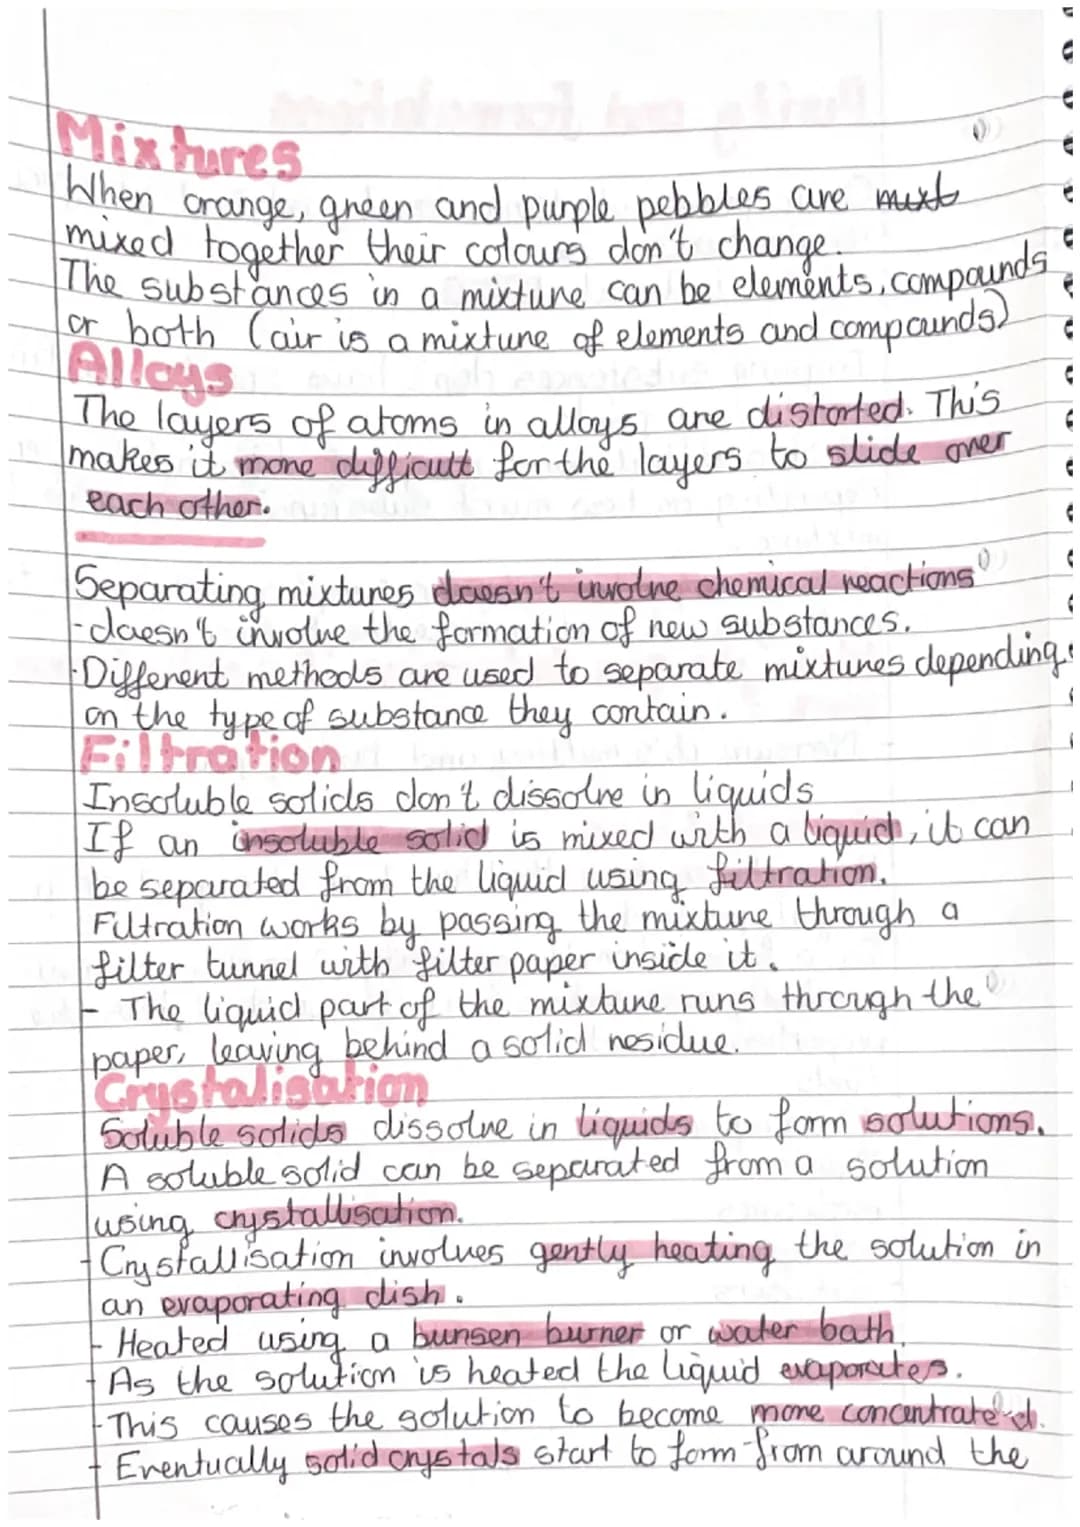 Mixtures
When orange, green and purple pebbles are mixt
mixed together their colours don't change.
The substances in a mixture can be elements, compounds
or both (air is a mixture of elements and compounds)
Alloys
The layers of atoms in alloys are distorted. This
makes it more difficult for the layers to slide over
each other.
Separating mixtures doesn't involve chemical reactions
- doesn't involve the formation of new substances.
- Different methods are used to separate mixtures depending
on the type of substance they contain.
Filtration
Insoluble solids don't dissolve in liquids
If an insoluble solid is mixed with a liquid, it can
be separated from the liquid using filtration.
Filtration works by passing the mixture through a
filter tunnel with filter paper inside it.
- The liquid part of the mixture runs through the
paper, leaving behind a solid residue.
Crystalisation
Soluble solids dissolve in liquids to form solutions.
A soluble solid can be separated from a solution
using crystallisation.
- Crystallisation involves gently heating the solution in
an evaporating dish.
- Heated using a bunsen burner or water bath.
- As the solution is heated the liquid evaporates.
- This causes the solution to become more concentrated.
- Eventually solid crystals start to form from around the